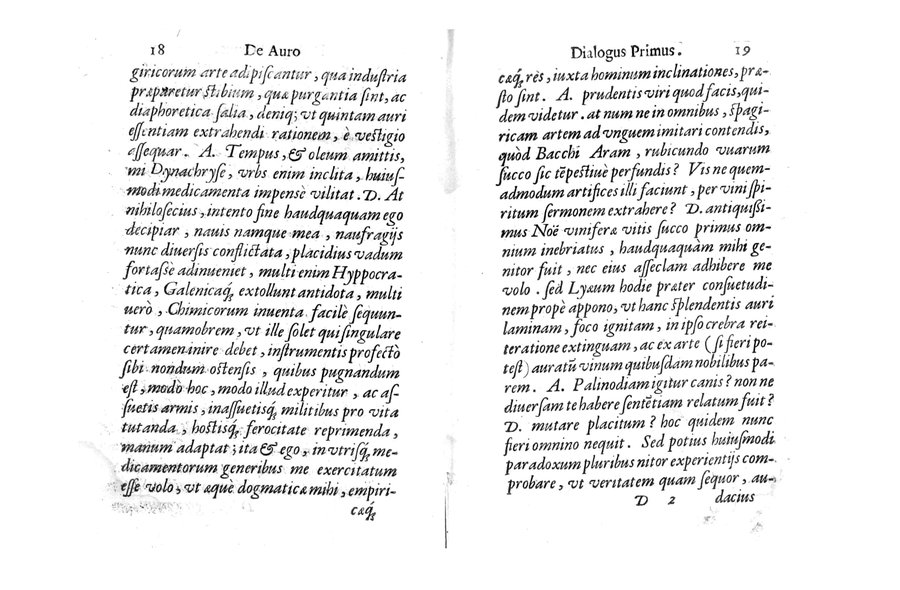 18 De Auro
giricorum arte adipiſcantur, qua induſtria
præparetur ſtibium, quæ purgantia ſint, ac
diaphoretica ſalia, deniq; vt quintam auri
eſſentiam extrahendi rationem, è veſtigio
aſſequar. A. Tempus, & oleum amittis,
mi Dynachryſe, vrbs enim inclita, huiuſ-
modi medicamenta impensè vilitat. D. At
nihiloſecius, intento fine haudquaquam ego
decipiar, nauis namque mea, naufragijs
nunc diuerſis conflictata, placidius vadum
fortaſſe adinueniet, multi enim Hyppocra-
tica, Galenicaq́; extollunt antidota, multi
uerò, Chimicorum inuenta facilè ſequun-
tur, quamobrem, vt ille ſolet qui ſingulare
certamen inire debet, inſtrumentis profectò
ſibi nondum oſtenſis, quibus pugnandum
eſt, modò hoc, modo illud experitur, ac aſ-
ſuetis armis, inaſſuetiſq́; militibus pro vita
tutanda, hoſtiſq́; ferocitate reprimenda,
manum adaptat; ita & ego, in vtriſq́; me-
dicamentorum generibus me exercitatum
eſſe volo, vt æquè dogmaticæ mihi, empiri-
cæq́;
Dialogus Primus. 19
cæq́; res, iuxta hominum inclinationes, præ-
ſto ſint. A. prudentis viri quod facis, qui-
dem videtur. at num ne in omnibus, ſpagi-
ricam artem ad vnguem imitari contendis,
quòd Bacchi Aram, rubicundo vuarum
ſucco ſic tẽpeſtiuè perfundis? Vis ne quem-
admodum artifices illi faciunt, per vini ſpi-
ritum ſermonem extrahere? D. antiquiſſi-
mus Noë viniferæ vitis ſucco primus om-
nium inebriatus, haudquaquàm mihi ge-
nitor fuit, nec eius aſſeclam adhibere me
volo. ſed Lyæum hodie præter conſuetudi-
nem propè appono, vt hanc ſplendentis auri
laminam, foco ignitam, in ipſo crebra rei-
teratione extinguam, ac ex arte (ſi fieri po-
teſt) auratũ vinum quibuſdam nobilibus pa-
rem. A. Palinodiam igitur canis? non ne
diuerſam te habere ſentẽtiam relatum fuit?
D. mutare placitum? hoc quidem nunc
fieri omnino nequit. Sed potius huiuſmodi
paradoxum pluribus nitor experientijs com-
probare, vt veritatem quam ſequor, au-
D 2 dacius